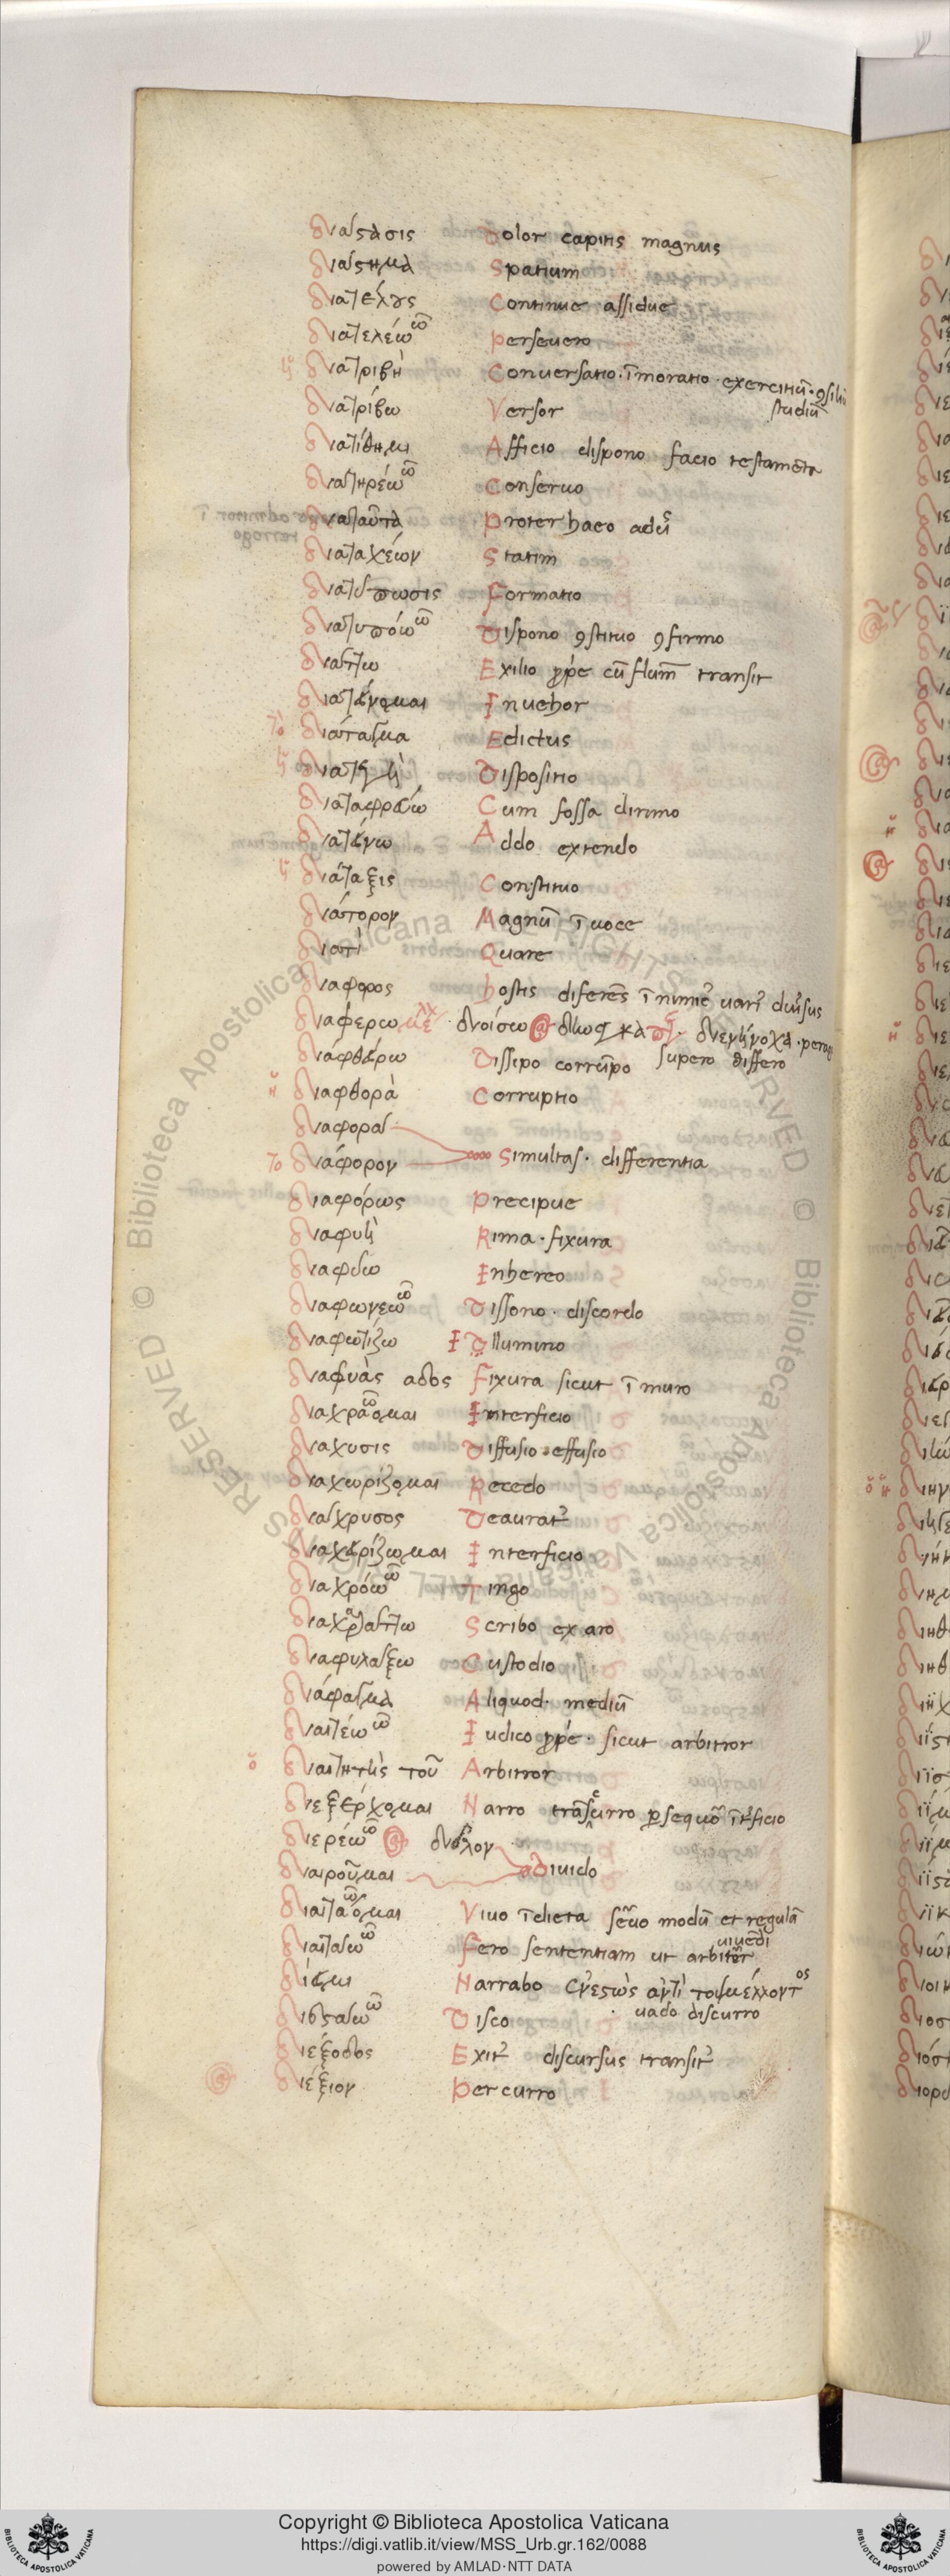 διάστασις Dolor capitis magnus
διάστημα Spatium
διατελέως Continue assidue
διατελέω ῶ Perseuero
ἡ διατριβὴ Conuersatio · ī moratio · exercitiū ·
διατρίβω Versor studiū
διατίθημι Afficio dispono facio testamētū
διατηρέω ῶ Conseruo
διαταῦτα Propter haec
διαταχέων Statim
διατύπωσις Formatio
διατυπόω ῶ Dispono ꝯstituo ꝯfirmo
Exilio ꝓpe cū flum̄ transit
διατείνομαι Inuehor
τὸ διάταγμα Edictus
ἡ διαταγὴ Dispositio
διαταφρεύω Cum fossa dirimo
διατείνω Addo extendo
ἡ διάταξις Constituo
διάτορον Magnū ī uoce
διατὶ Quare
διάφορος hostis diferēs
διαφέρω διοίσω
διαφθείρω Dissipo corrūpo supero differo
ἡ διαφθορὰ Corruptio
διαφορὰ
τὸ διάφορον Simultas · differentia
διαφόρως Precipue
διαφυὴ Rima · fixura
διαφύω Inhereo
διαφωνέω ῶ Dissono · discordo
διαφωτίζω Illumino
διαφυὰς αδος Fixura sicut ī muro
διαχράομαι ῶ Interficio
διάχυσις Diffusio effusio
διαχωρίζομαι Recedo
διάχρυσος Deaurat᾽
διαχειρίζωμαι Interficio
διαχρόω ῶ Tingo
διαχαράττω Scribo ex aro
διαφυλάξω Custodio
διάφραγμα Aliquod · mediū
διαιτέω ῶ Iudico ꝓpe · sicut arbitror
ὁ διαιτητὴς τοῦ Arbitror
διεξέρχομαι Narro trāscurro
διερέω ῶ διεῖλον
διαιροῦμαι Diuido
διαιτάομαι ῶ Viuo ī dieta seruo modū et regulā uiuēdi
διαιτάω ῶ Fero sententiam ut arbiter
Narrabo ἐνεστὼς ἀντὶ τοῦ μέλλοντος
Disco uado discurro
διέξοδος Exit᾽ discursus transit᾽
διέξιον Percurro
Copyright © Biblioteca Apostolica Vaticana
https://digi.vatlib.it/view/MSS_Urb.gr.162/0088
powered by AMLAD·NTT DATA